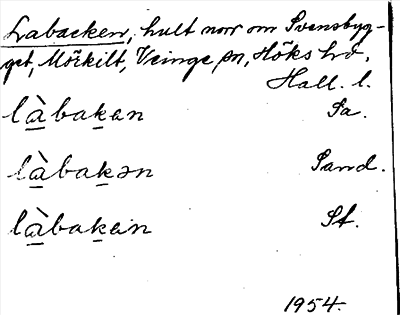 Labacken, hult norr om Svensbyg-
get, Mörkilt, Veinge sn, Höks hd,
Hall. l.
làbakan Sa.
làbakən Sand.
làbakan St.
1954.